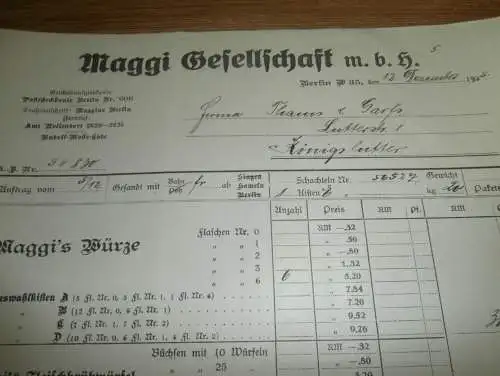 Maggi Gesellschaft m. b. H.
Berlin W 35, den 12 Dezember 19
Postscheckkonto Berlin Nr.
Firma Thams & Garfs
Amt Nollendorf 2820-2825
Rudolf-Mosse-Code
Lutterstr. 1
Königslutter
Nr. 50830
Auftrag vom 5/12 Gesandt mit Bahn Post fr ab Singen Hameln Berlin
Schachteln Nr. 56527 Gewicht
1 Kisten kg 20 Pakete
Anzahl Preis RM Pf. RM
Maggi's Würze
Flaschen Nr. 0 RM -.32
" " 1 " -.50
" " 2 " -.80
" " 3 " 1.32
" " 6 6 " 5.20
Auswahlkisten A (5 Fl. Nr. 0, 3 Fl. Nr. 1, 1 Fl. Nr. 6) " 7.54
" B (12 Fl. Nr. 0, 6 Fl. Nr. 1) " 7.26
" C ( Fl. Nr. 1, Fl. Nr. ) " 9.52
" D (10 Fl. Nr. 0, 6 Fl. Nr. 1, Fl. Nr. 2) " 9.26
Büchsen mit 10 Würfeln RM -.32
" " 25 " -.80